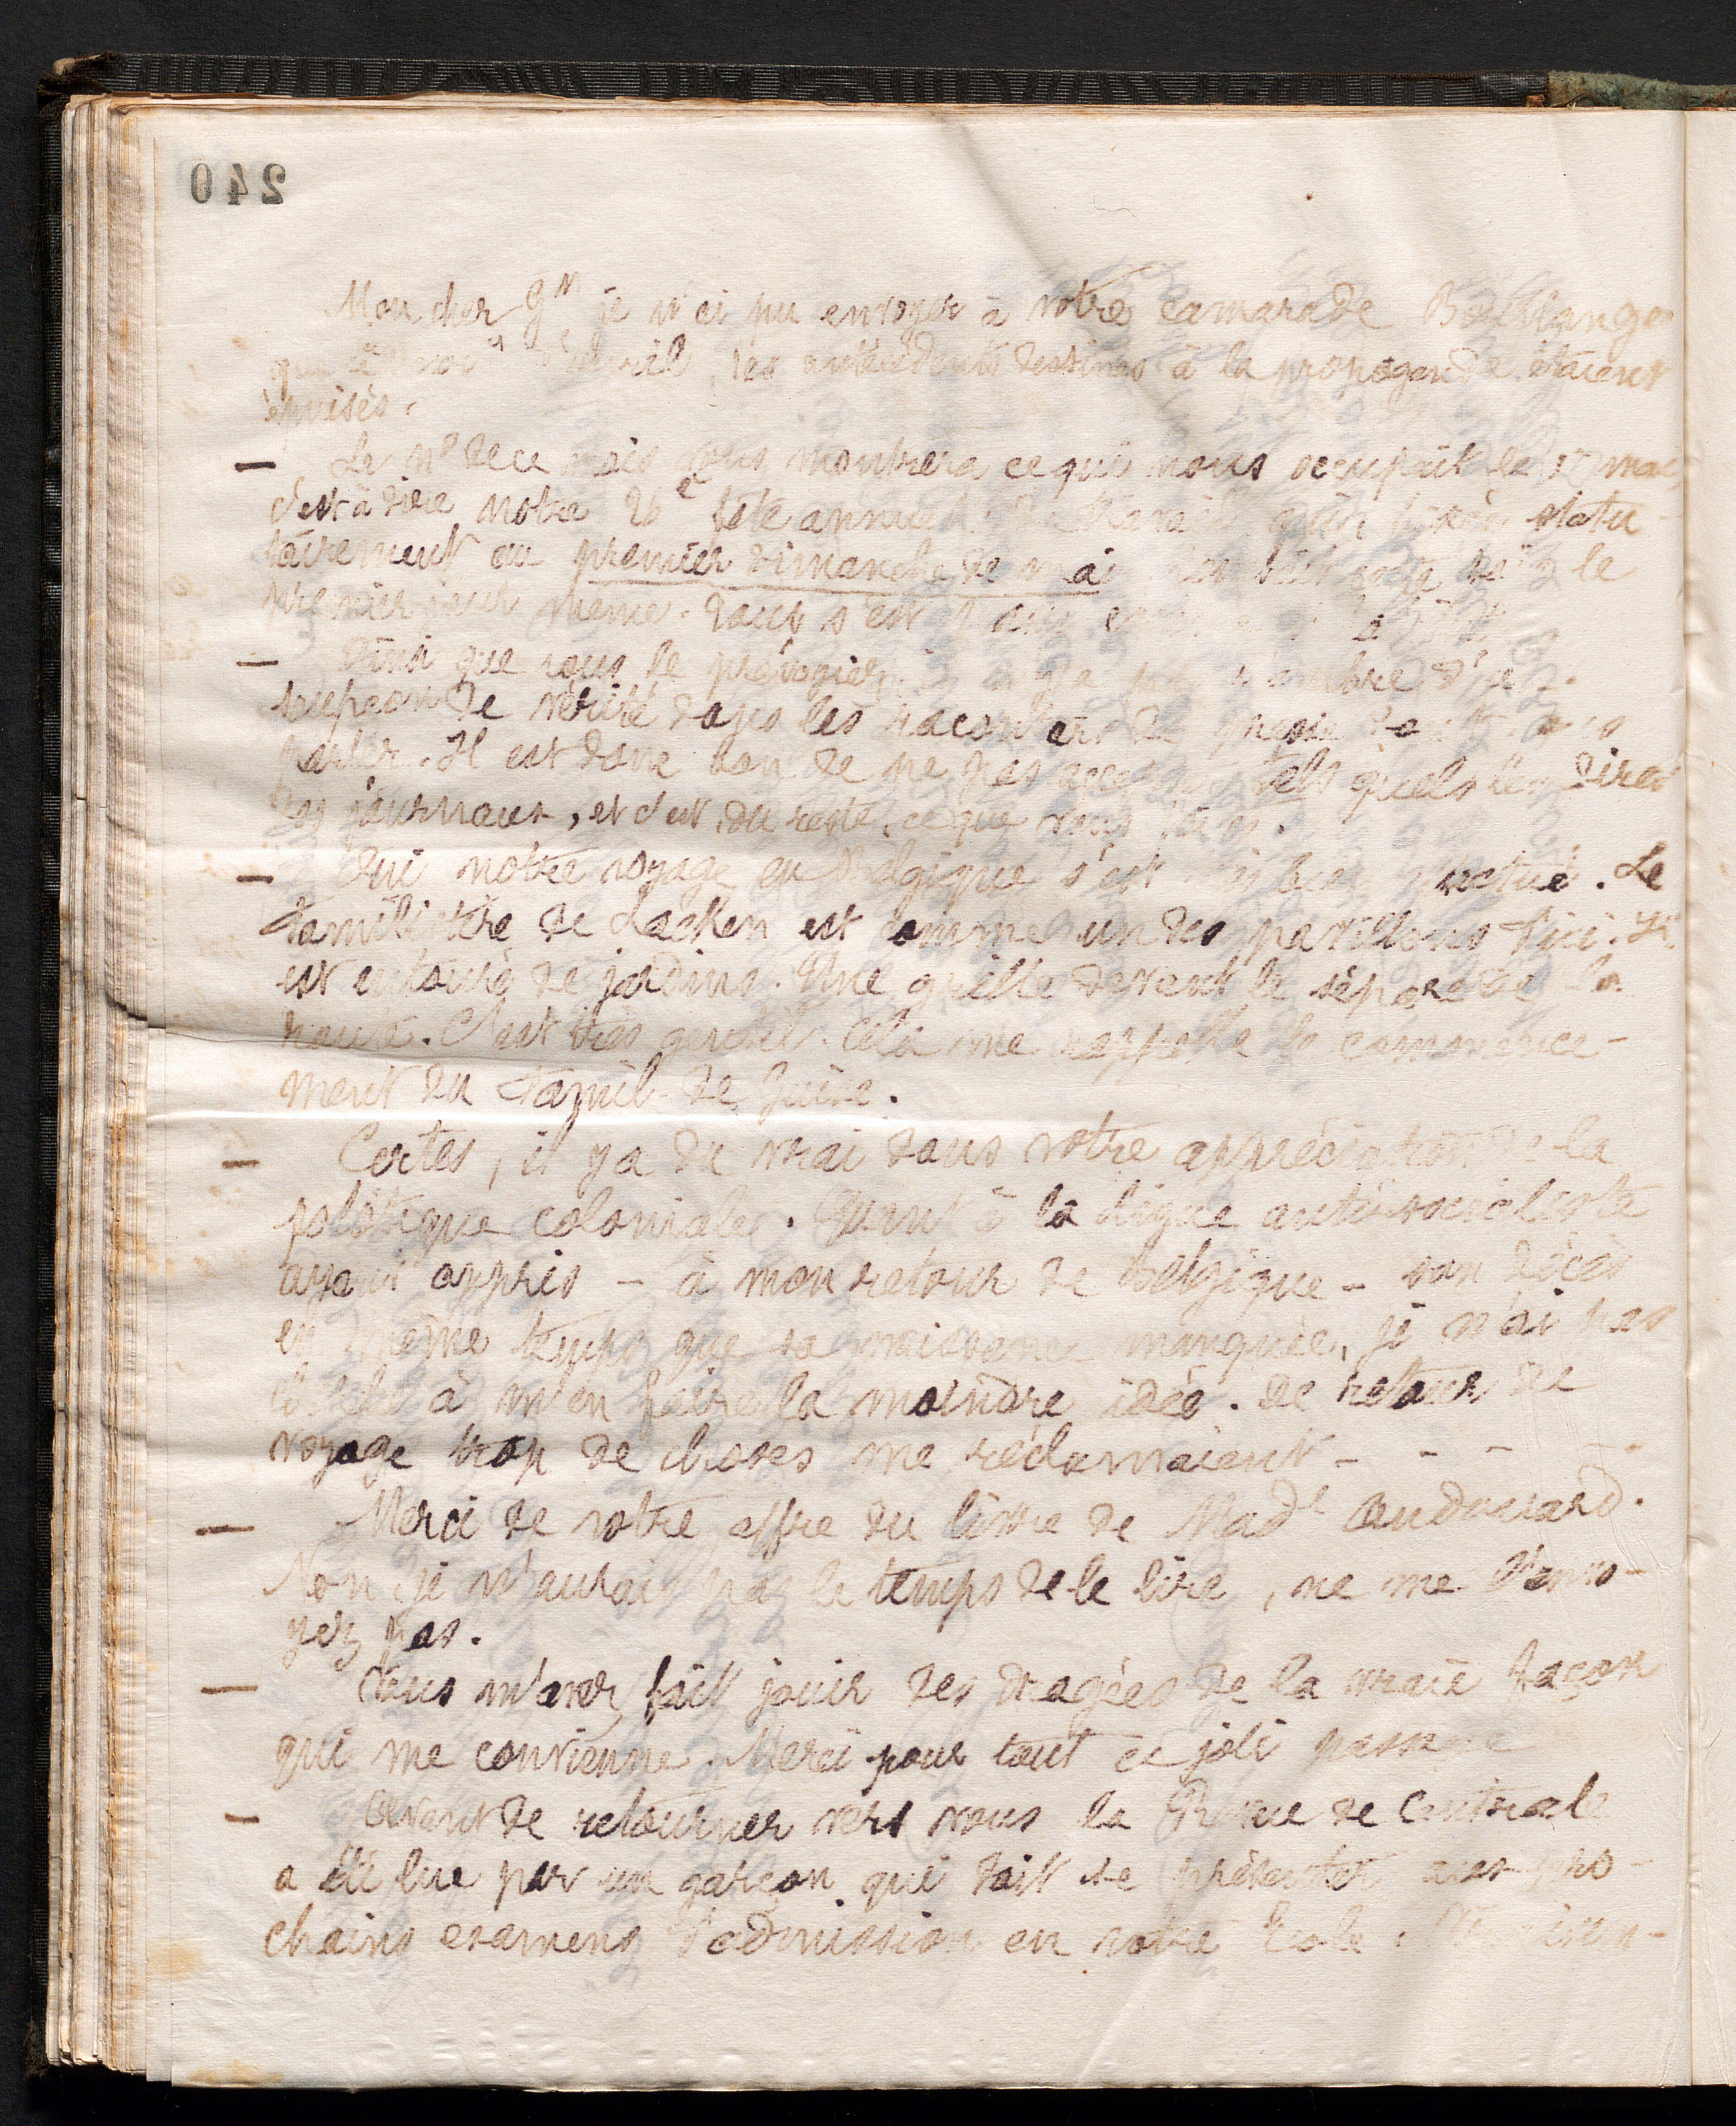 240
Mon cher Gn, je n'ai pu envoyer à votre camarade
les antécédents destinés à la propagande étaient
épuisés.
— Le No de ce mois vous montrera ce qui nous occupait le 1er mai,
c'est à dire notre fête annuelle statu-
tairement au premier dimanche de mai le
premier jour même. Tout s'est
— Ainsi que vous le préssentez, il n'y a pas l'ombre d'un
soupçon de vérité dans les racontars de presse
parlez. Il est donc bon de ne pas accepter tels quels les dires
des journaux, et c'est, du reste, ce que vous faites.
— Oui notre voyage en Belgique s'est très bien effectué. Le
familistère de Laeken est comme un des pavillons d'ici. Il
est entouré de jardins. Une grille devant le sépare de la
route. C'est très gentil. Cela me rappelle le commence-
ment du Famil. de Guise.
— Certes, il y a du vrai dans votre appréciation de la
politique coloniale. Quant à la ligue anti-socialiste
ayant appris — à mon retour de Belgique — son décès
en même temps que sa naissance manquée, je n'ai pas
cherché à m'en faire la moindre idée. De retour de
voyage trop de choses me réclamaient - - - -
— Merci de votre offre du livre de Made Audouard.
Non, je n'aurais pas le temps de le lire, ne me l'envo-
yez pas.
— Vous m'avez fait jouir des dragées de la vraie façon
qui me convienne. Merci pour tout ce joli passage
— Avant de retourner vers vous la Revue de Centrale
a été lue par un garçon qui doit se présenter aux pro-
chains examens d'admission en votre Ecole.